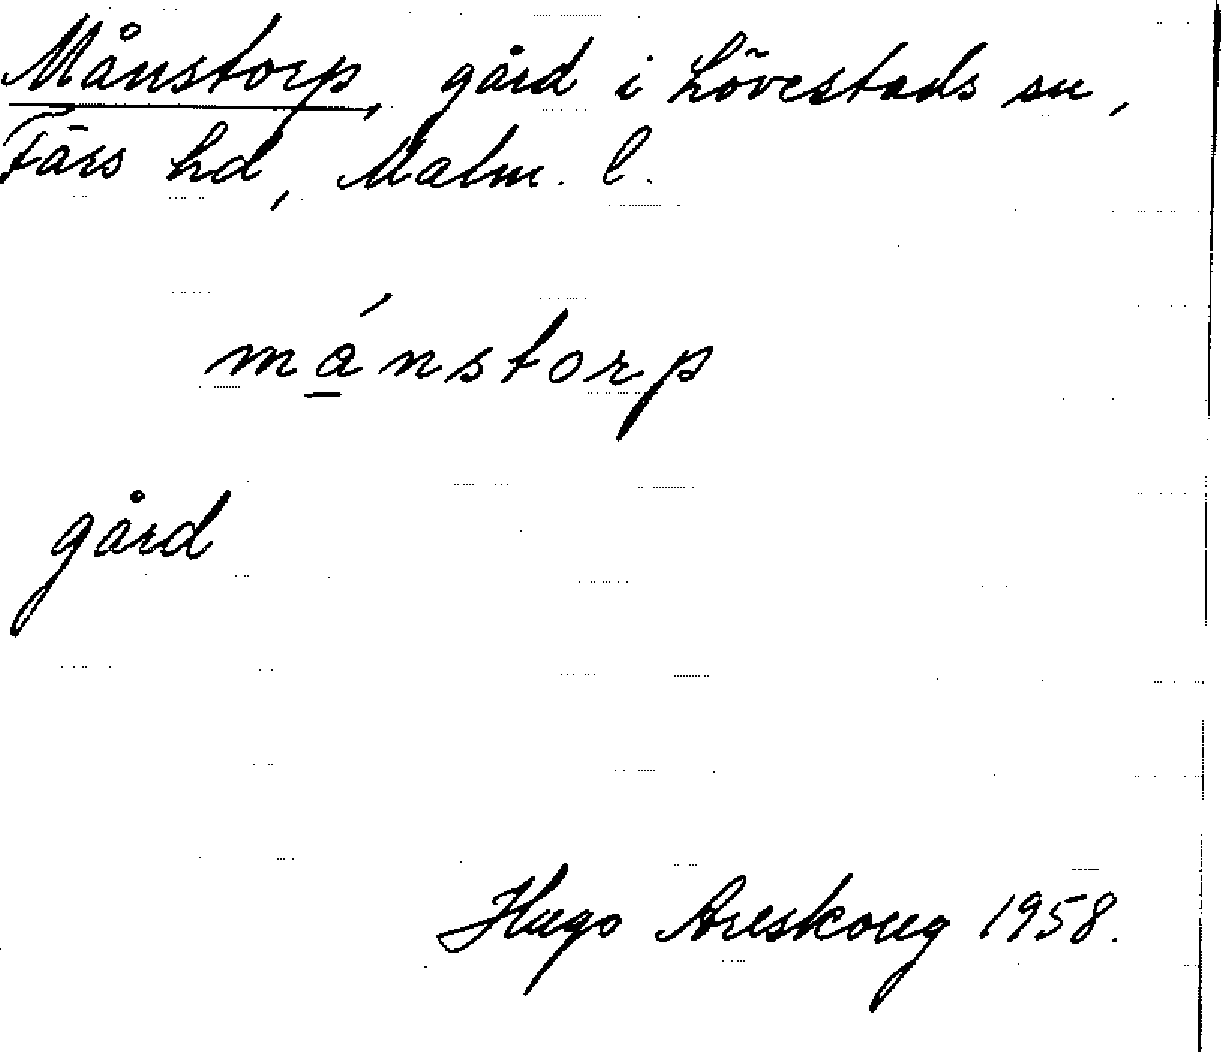 Månstorp, gård i Lövestads sn,
Färs hd, Malm. l.
má̱nstorp
gård
Hugo Areskoug 1958.